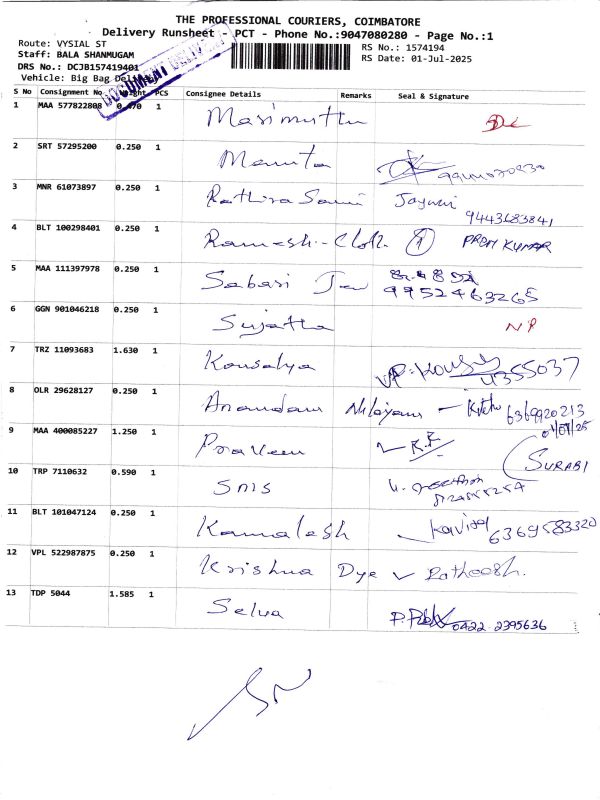 THE PROFESSIONAL COURIERS, COIMBATORE
Delivery Runsheet - PCT - Phone No.:9047080280 - Page No.:1
Route: VYSIAL ST
Staff: BALA SHANMUGAM
DRS No.: DCJB157419401
Vehicle: Big Bag
RS No.: 1574194
RS Date: 01-Jul-2025
DOCUMENT
S No Consignment No Weight PCS Consignee Details Remarks Seal & Signature
1 MAA 577822808 0.470 1 Marimuthu
2 SRT 57295200 0.250 1 Mamta
3 MNR 61073897 0.250 1 Rathina Sami 9443683841
4 BLT 100298401 0.250 1 Ramesh - Cloth. 1 KUMAR
5 MAA 111397978 0.250 1 Sabari 9952463265
6 GGN 901046218 0.250 1 Sujatha NP
7 TRZ 11093683 1.630 1 Kousalya 4355037
8 OLR 29628127 0.250 1 Anandam Nilayam - 6369920213
9 MAA 400085227 1.250 1 Praveen SURABI
10 TRP 7110632 0.590 1 SMS
11 BLT 101047124 0.250 1 Kamalesh 6369583320
12 VPL 522987875 0.250 1 Krishna Dye
13 TDP 5044 1.585 1 Selva 0422 2395636